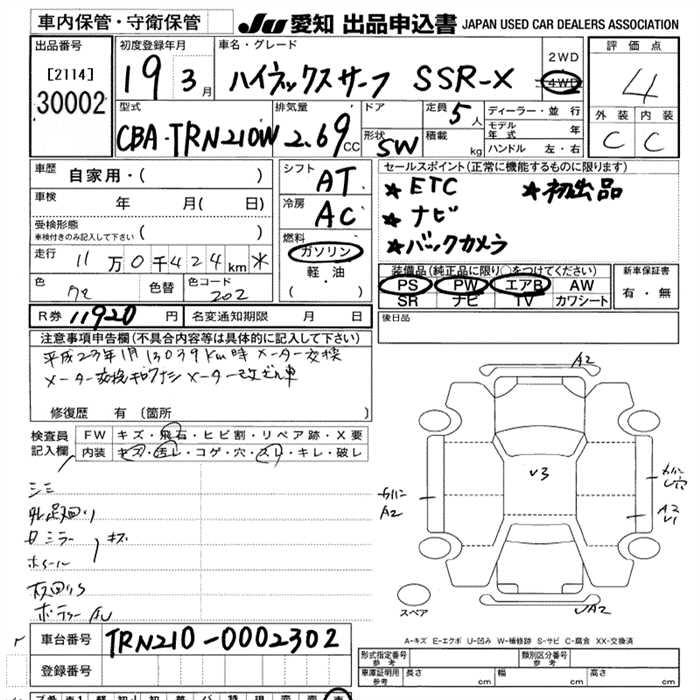 車内保管・守衛保管
JU 愛知 出品申込書 JAPAN USED CAR DEALERS ASSOCIATION
出品番号
[2114]
30002
初度登録年月
19 3月
車名・グレード
ハイラックスサーフ SSR-X
2WD
4WD
評価点
4
外装 内装
C C
型式
CBA-TRN210W
排気量
2.69cc
ドア
形状 SW
定員 5人
積載 kg
ディーラー・並行
モデル年式 年
ハンドル 左・右
車歴
自家用・( )
車検
年 月( 日)
受検形態
車検付きのみ記入して下さい ( )
走行
11万0千424km
色
色替
色コード
202
シフト
AT
冷房
AC
燃料
ガソリン
軽・油
・( )
セールスポイント(正常に機能するものに限ります)
★ETC ★初出品
★ナビ
★バックカメラ
装備品(純正品に限り○をつけてください)
PS PW エアB AW
SR ナビ TV カワシート
新車保証書
有・無
R券 11920 円
名変通知期限 月 日
後日品
注意事項申告欄(不具合内容等は具体的に記入して下さい)
平成23年1月13039km時メーター交換
修復歴 有 (箇所 )
検査員記入欄
FW キズ・飛石・ヒビ割・リペア跡・X要
内装 キズ・汚レ・コゲ・穴・スレ・キレ・破レ
シミ
ミラー
キズ
ホイール
A2
V3
A2
A2
V1
UA2
スペア
A-キズ E-エクボ U-凹み W-補修跡 S-サビ C-腐食 XX-交換済
車台番号
TRN210-0002302
登録番号
形式指定番号 参考
類別区分番号 参考
車庫証明用 参考 長さ 幅 高さ